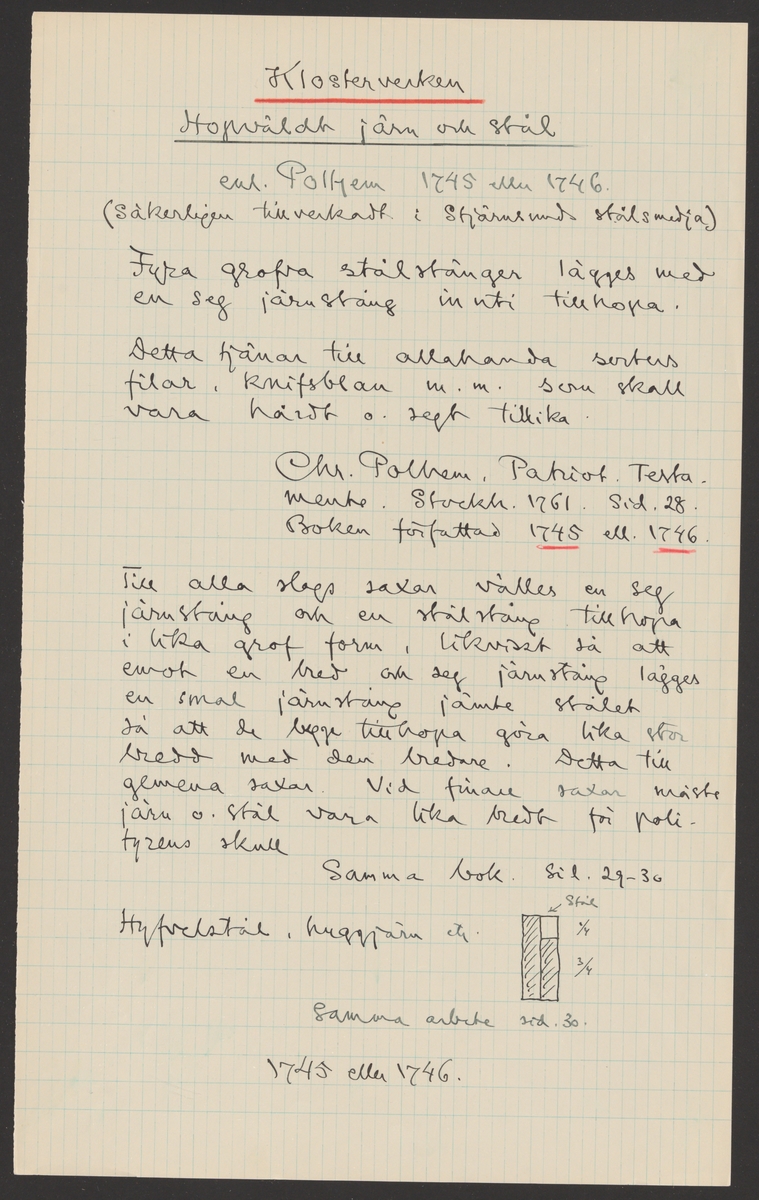 Klosterverken
Hopväldt järn och stål
enl. Polhem 1745 eller 1746.
(Säkerligen tillverkadt i Stjärnsunds stålsmedja)
Fyra grofva stålstänger lägges med
en seg järnstång inuti tillhopa.
Detta tjänar till allahanda sorters
filar, knifsblan m.m. som skall
vara hårdt o. segt tillika.
Chr. Polhem, Patriot. Testa-
mente. Stockh. 1761. Sid. 28.
Boken författad 1745 ell. 1746.
Till alla slags saxar välles en seg
järnstång och en stålstång tillhopa
i lika grof form, likvisst så att
emot en bred och seg järnstång lägges
en smal järnstång jämte stålet
så att de begge tillhopa göra lika stor
bredd med den bredare. Detta till
gemena saxar. Vid finare saxar måste
järn o. stål vara lika bredt för poli-
tyrens skull
Samma bok. Sid. 29-30
Stål
Hyfvelstål, huggjärn etc.
1/4
3/4
Samma arbete sid. 30.
1745 eller 1746.